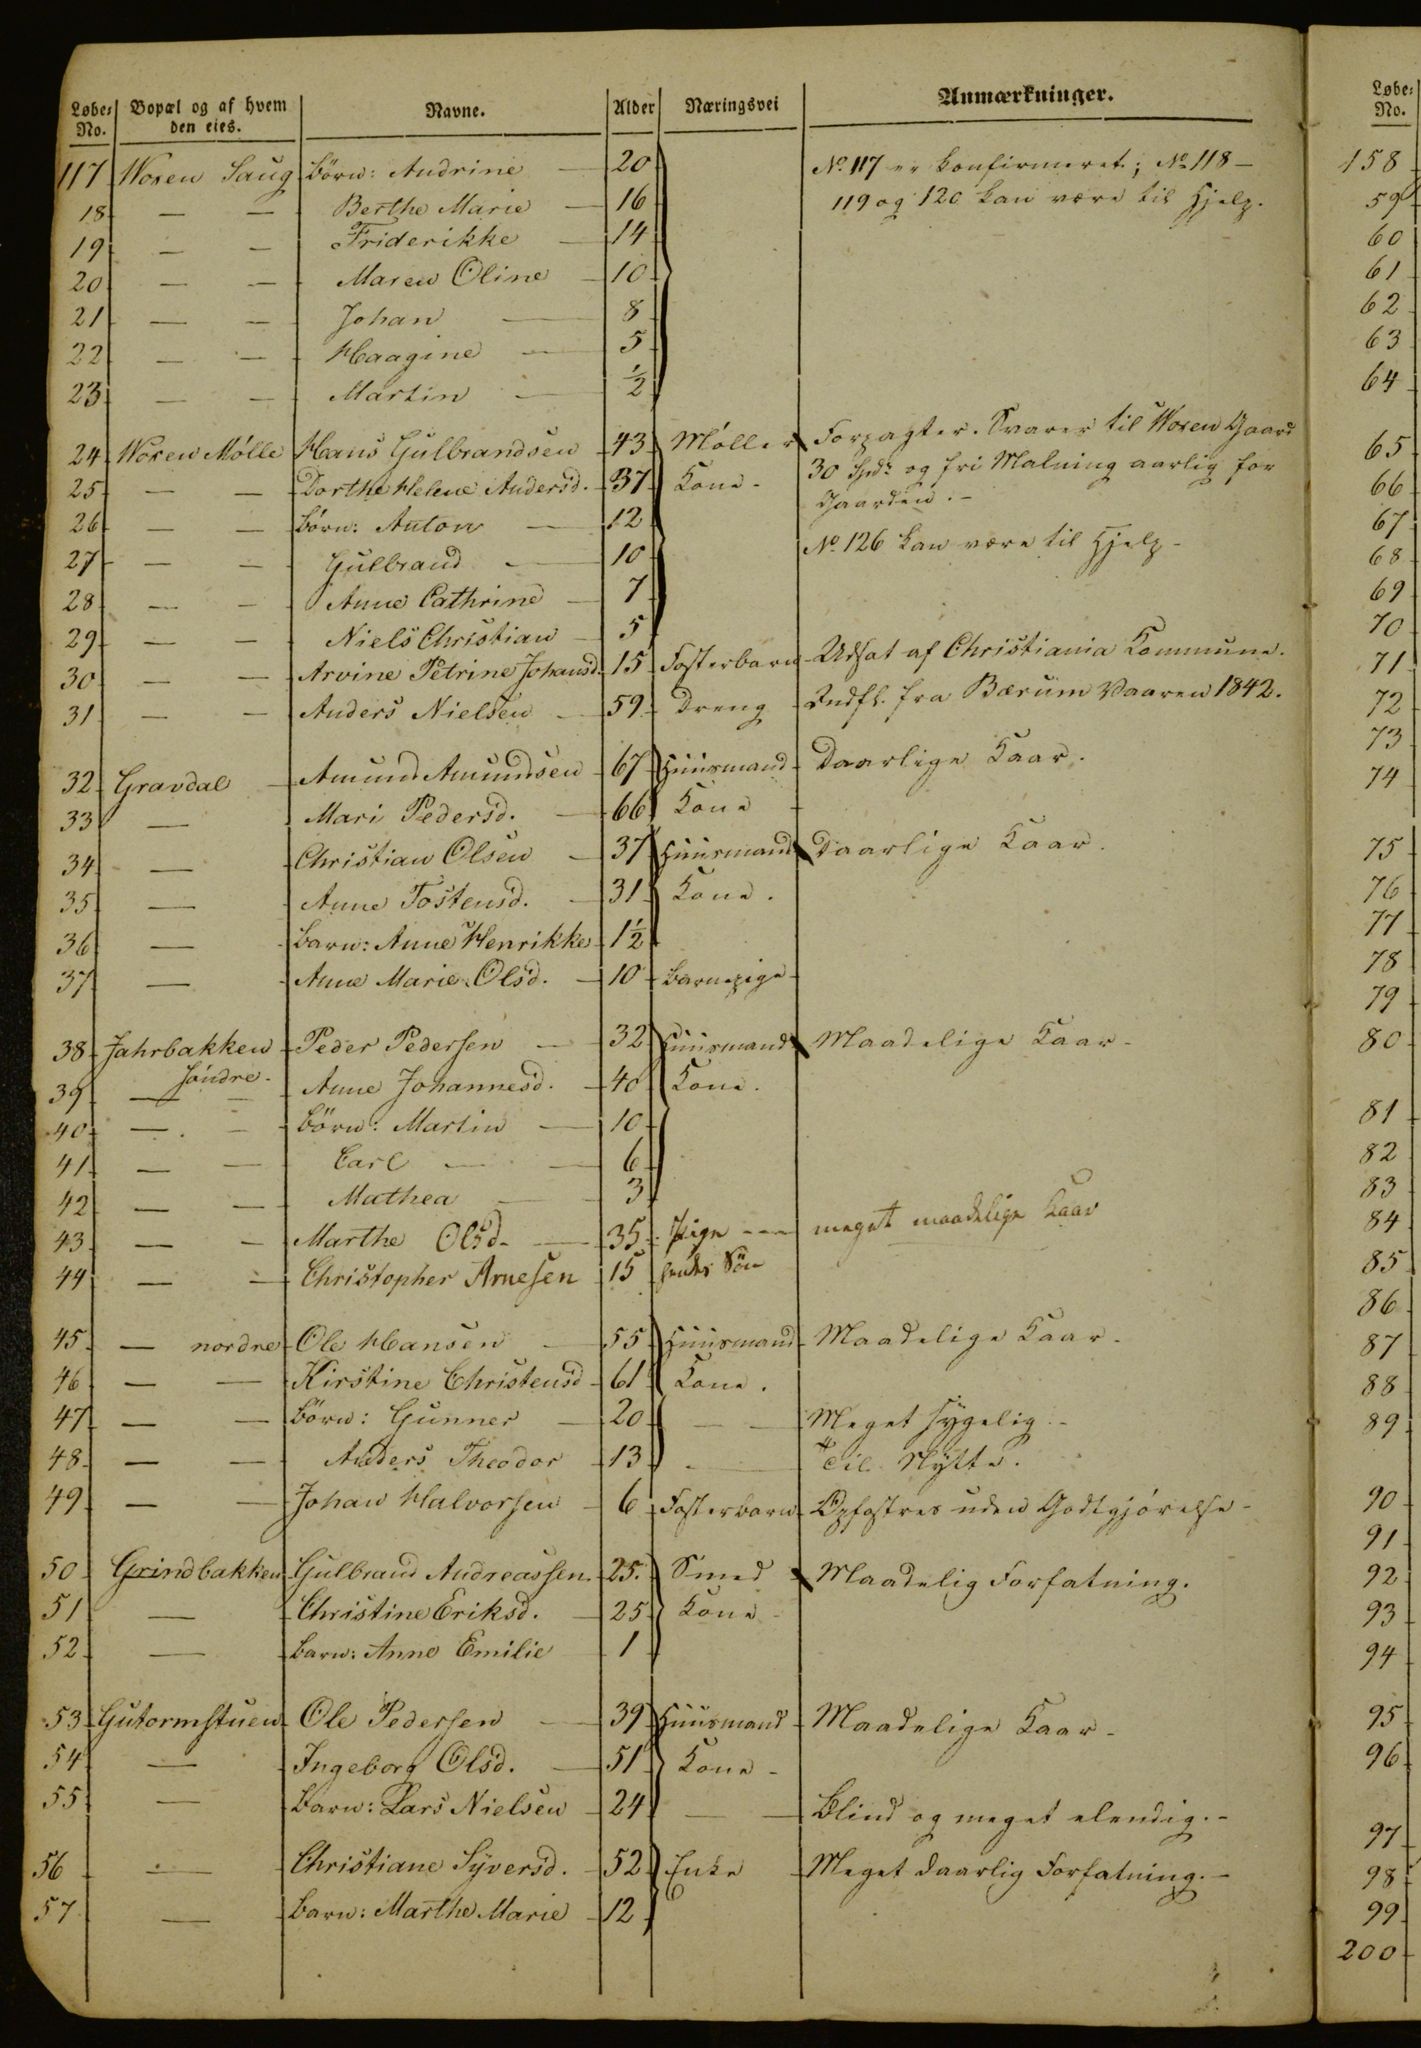 Løbe-No. | Bopæl og af hvem den eies. | Navne. | Alder | Næringsvei | Anmærkninger.
117 Woxen Saug Börn: Andrine — 20 No 117 er konfirmeret; No 118 —
18 — — Berthe Marie — 16 119 og 120 kan være til Hjelp.
19 — — Friderikke — 14
20 — — Maren Oline — 10
21 — — Johan — 8
22 — — Haagine — 5
23 — — Martin — ½
24 Woxen Mølle Hans Gulbrandsen 43 Møller Forpagter. Svarer til Woxen Gaard
25 — — Dorthe Helene Andersd. 37 Kone - 30 Spd. og fri Malning aarlig for
Gaarden. -
26 — — Börn: Anton — 12
27 — — Gulbrand — 10 No 126 kan være til Hjelp -
28 — — Anne Cathrine — 7
29 — — Niels Christian — 5
30 — — Arvine Petrine Johansd. 15 Fosterbarn Udsat af Christiania Kommune.
31 — — Anders Nielsen — 59 Dreng Indfl. fra Bærum Vaaren 1842.
32 Gravdal — Amund Amundsen 67 Huusmand Daarlige Kaar.
33 — Mari Pedersd. — 66 Kone
34 — Christian Olsen — 37 Huusmand Daarlige Kaar.
35 — Anne Tostensd. — 31 Kone.
36 — Barn: Anne Henrikke 1½
37 — Anne Marie Olsd. — 10 Barnepige
38 Jahrbakken Peder Pedersen — 32 Huusmand Maadelige Kaar -
söndre.
39 — — Anne Johannesd. 40 Kone.
40 — — Börn: Martin — 10
41 — — Carl — — 6
42 — — Mathea — 3
43 — — Marthe Olsd. — 35 Pige --- meget maadelige Kaar
44 — — Christopher Arnesen 15 hendes Sön
45 — nordre Ole Hansen — 55 Huusmand Maadelige Kaar -
46 — — Kirstine Christensd 61 Kone.
47 — — Börn: Gunner — 20 — — Meget sygelig. -
48 — — Anders Theodor 13 — Til Nytte.
49 — — Johan Halvorsen 6 Fosterbarn Opfostres uden Godtgjörelse -
50 Grindbakken Gulbrand Andreassen. 25. Smed Maadelig Forfatning.
51 — Christine Eriksd. — 25 Kone -
52 — Barn: Anne Emilie 1
53 Gutormstuen Ole Pedersen — 39 Huusmand Maadelige Kaar -
54 — Ingeborg Olsd. — 51 Kone -
55 — Barn: Lars Nielsen 24 — — Blind og meget elendig. -
56 — Christiane Syversd. 52 Enke Meget daarlig Forfatning. -
57 — Barn: Marthe Marie 12
Løbe-No.
158
59
60
61
62
63
64
65
66
67
68
69
70
71
72
73
74
75
76
77
78
79
80
81
82
83
84
85
86
87
88
89
90
91
92
93
94
95
96
97
98
99
200